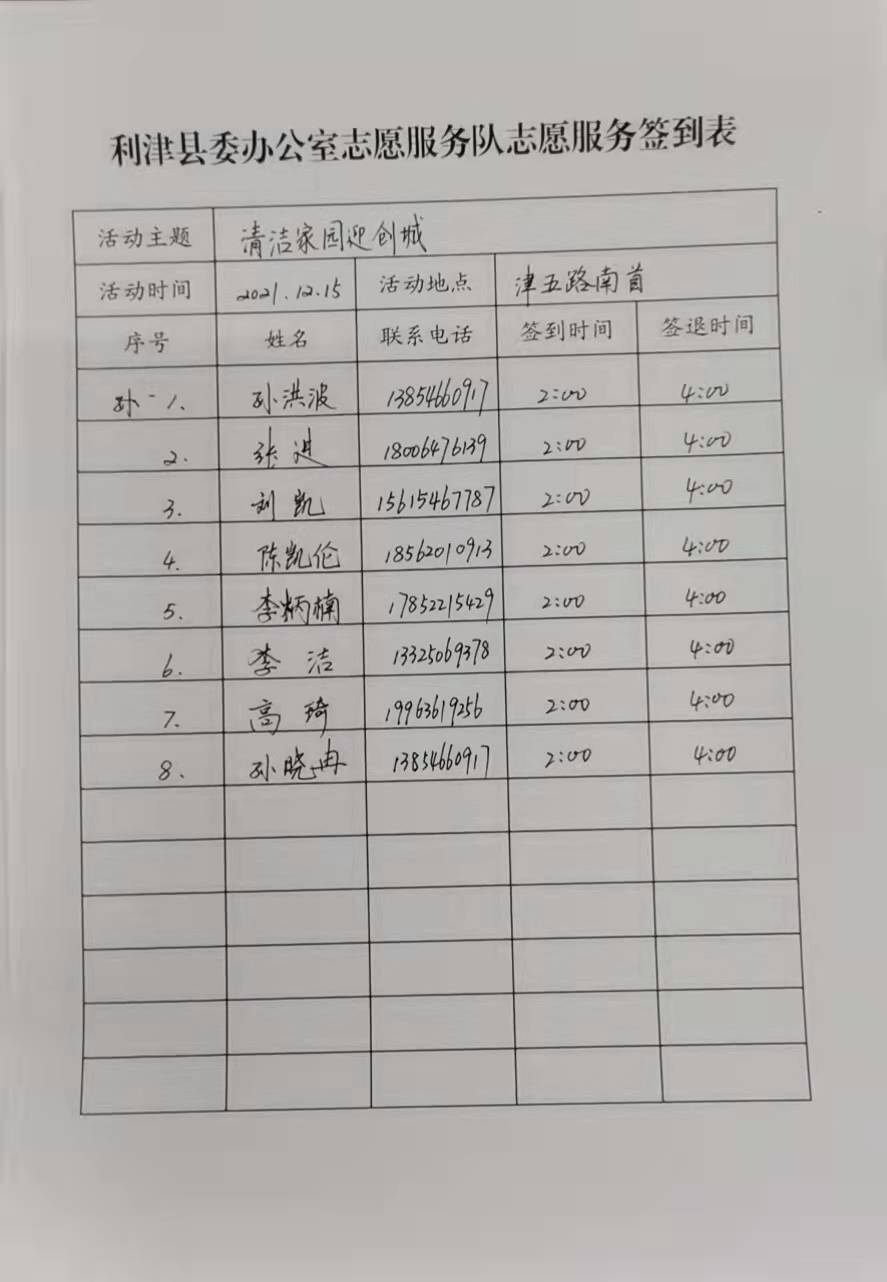 利津县委办公室志愿服务队志愿服务签到表
活动主题 清洁家园迎创城
活动时间 2021.12.15 活动地点 津五路南首
序号 姓名 联系电话 签到时间 签退时间
孙 - 1. 孙洪波 13854660917 2:00 4:00
2. 张进 18006476139 2:00 4:00
3. 刘凯 15615467787 2:00 4:00
4. 陈凯伦 18562010913 2:00 4:00
5. 李炳楠 17852215429 2:00 4:00
6. 李洁 13325069378 2:00 4:00
7. 高琦 19963619256 2:00 4:00
8. 孙晓冉 13854660917 2:00 4:00